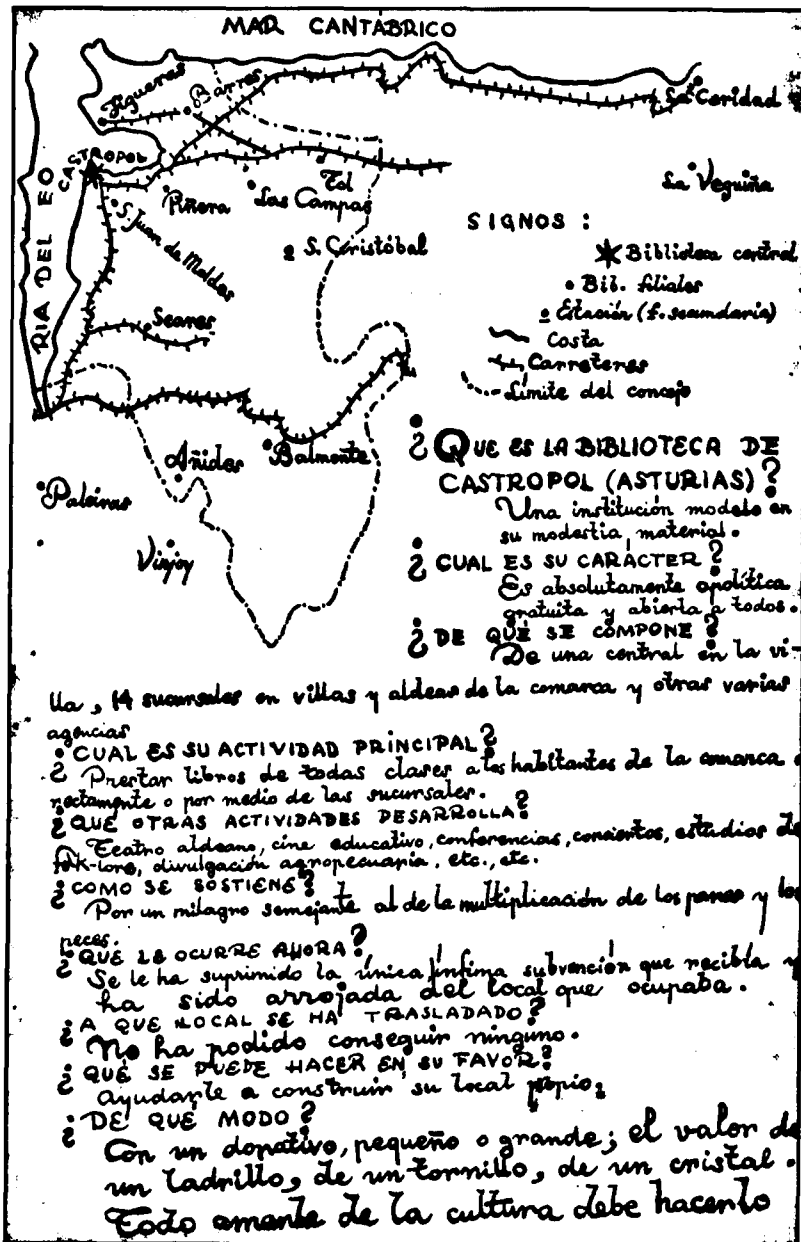 MAR CANTABRICO
Figueras
Barres
La Caridad
CASTROPOL
RIA DEL EO
Piñera
Las Campas
Tol
La Veguiña
S. Juan de Moldes
S. Cristóbal
Seares
SIGNOS :
Biblioteca central
Bib. filiales
Estación (f. secundaria)
Costa
Carreteras
Límite del concejo
Añides
Balmonte
Paleiras
Vinjoy
¿QUE ES LA BIBLIOTECA DE
CASTROPOL (ASTURIAS)?
Una institución modelo en
su modestia material.
¿CUAL ES SU CARÁCTER?
Es absolutamente apolítica
gratuita y abierta a todos.
¿DE QUÉ SE COMPONE?
De una central en la vi-
lla, 14 sucursales en villas y aldeas de la comarca y otras varias
agencias
¿CUAL ES SU ACTIVIDAD PRINCIPAL?
Prestar libros de todas clases a los habitantes de la comarca
rectamente o por medio de las sucursales.
¿QUÉ OTRAS ACTIVIDADES DESARROLLA?
Teatro aldeano, cine educativo, conferencias, conciertos, estudios de
folk-lore, divulgación agropecuaria, etc., etc.
¿COMO SE SOSTIENE?
Por un milagro semejante al de la multiplicación de los panes y los
peces.
¿QUÉ LE OCURRE AHORA?
Se le ha suprimido la única ínfima subvención que recibía y
ha sido arrojada del local que ocupaba.
¿A QUE LOCAL SE HA TRASLADADO?
No ha podido conseguir ninguno.
¿QUÉ SE PUEDE HACER EN SU FAVOR?
Ayudarle a construir su local propio.
¿DE QUÉ MODO?
Con un donativo, pequeño o grande; el valor de
un ladrillo, de un tornillo, de un cristal.
Todo amante de la cultura debe hacerlo